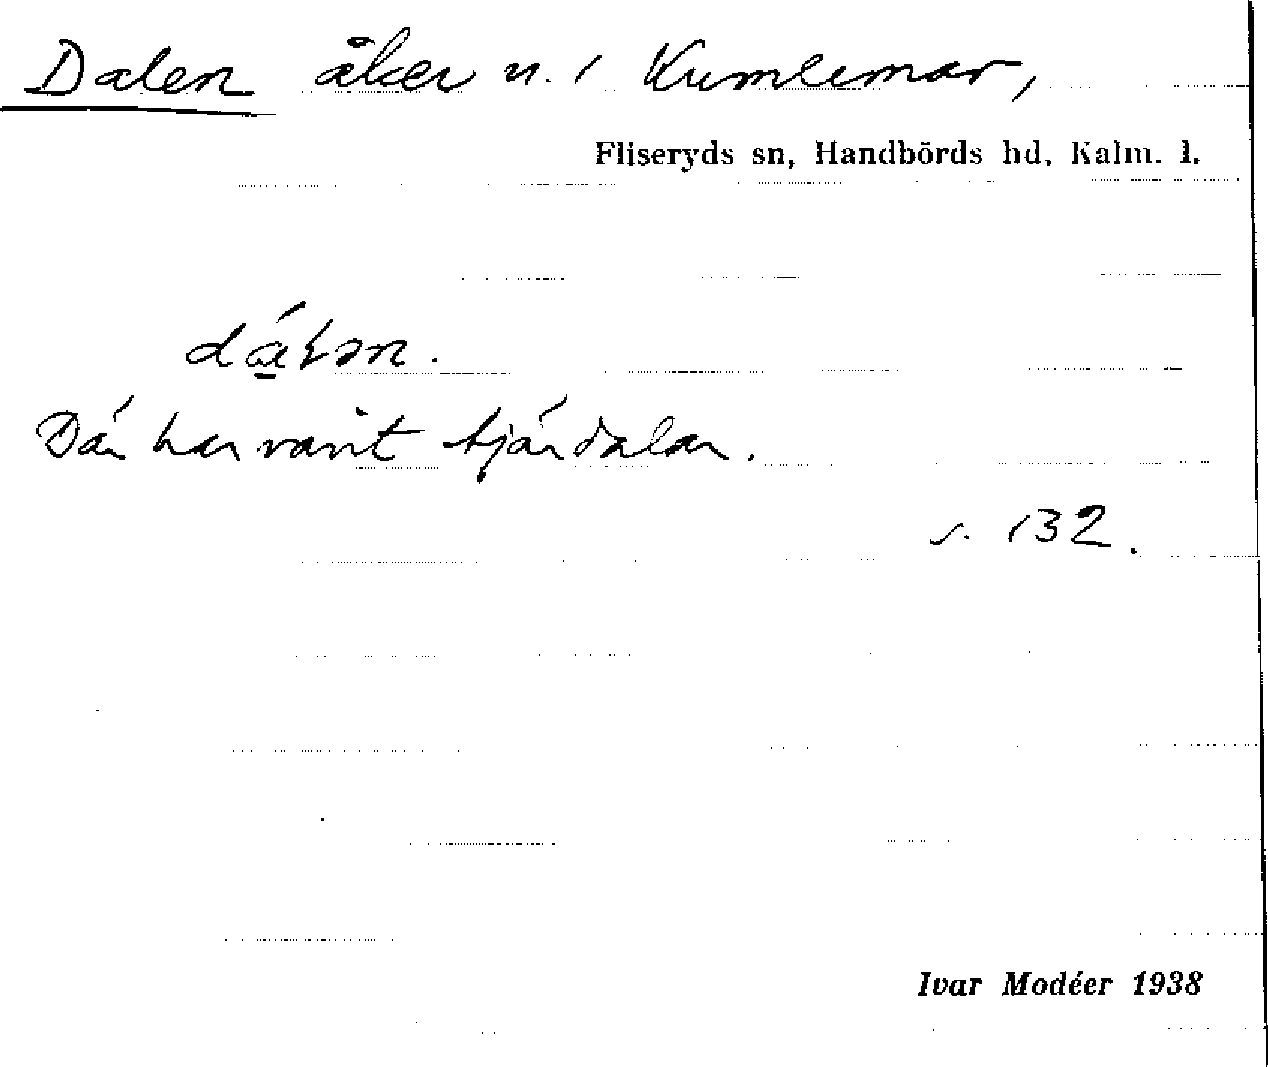 Dalen åker n. i Kumlemar,
Fliseryds sn, Handbörds hd, Kalm. l.
Där har varit tjärdalar.
s. 132.
Ivar Modéer 1938